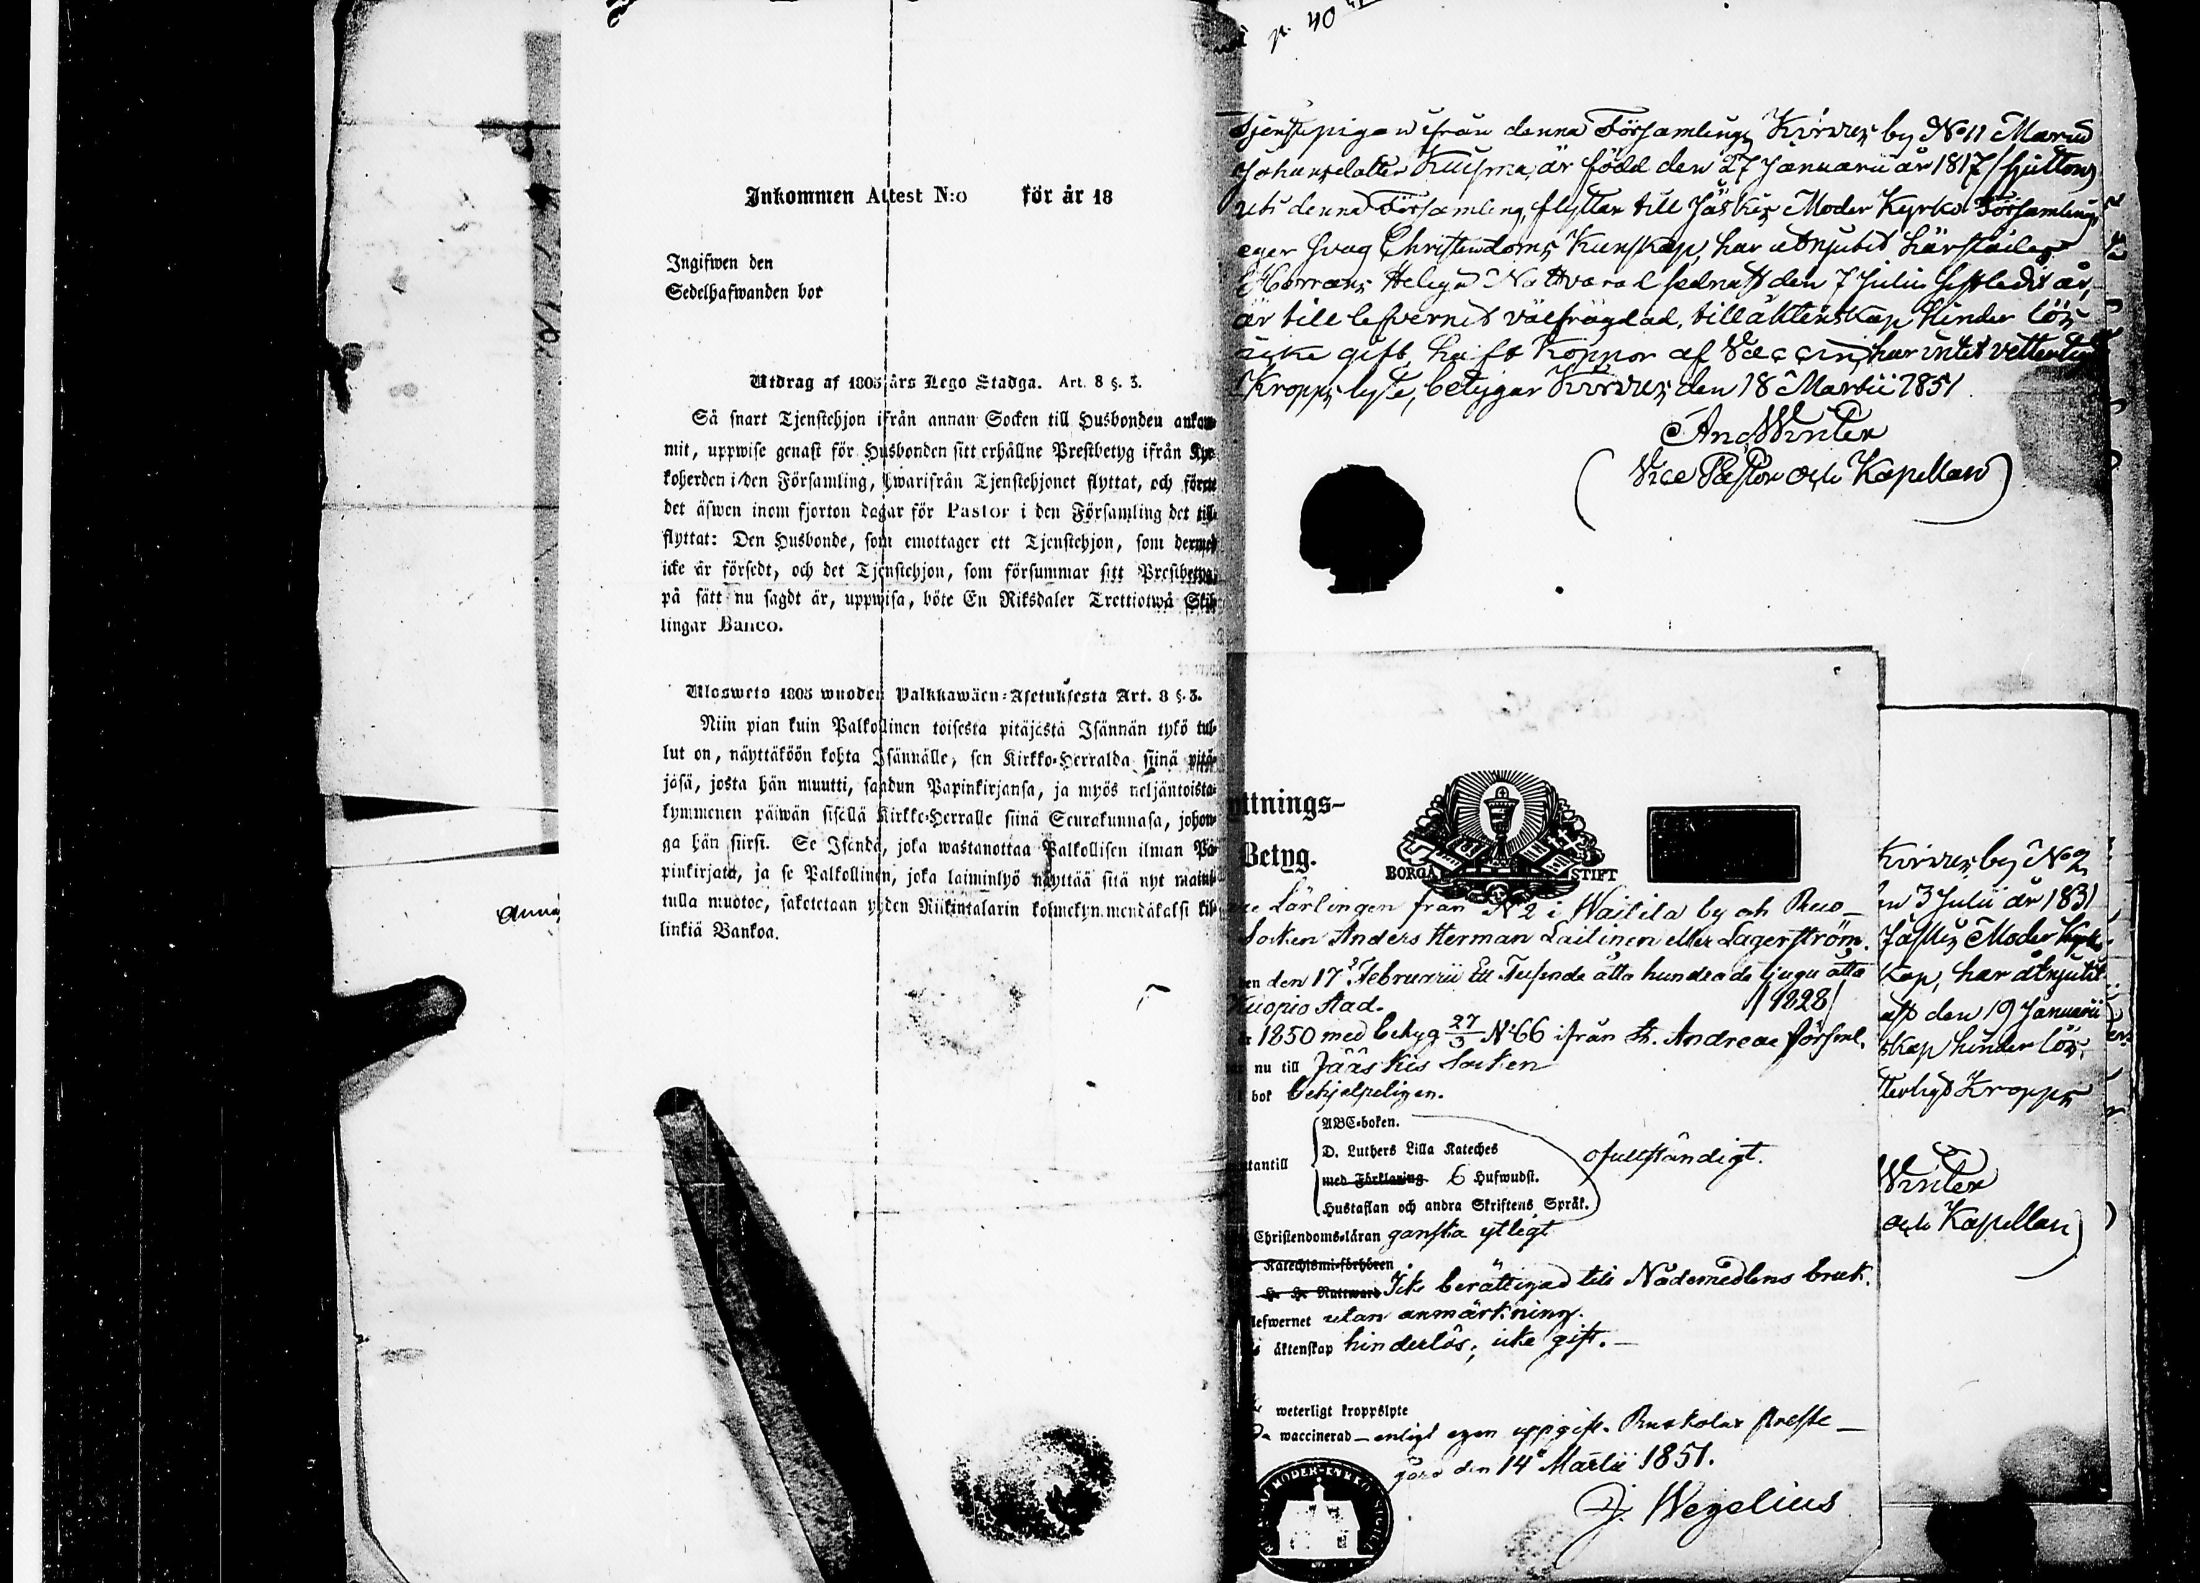 Inkommen Attest N:o för år 18
Ingifwen den
Sedelhafwanden bor
Utdrag af 1805 års Lego Stadga. Art. 8 §. 3.
Så snart Tjenstehjon ifrån annan Socken till Husbonden ankom-
mit, uppwise genast för Husbonden sitt erhållne Prestbetyg ifrån Kyr-
koherden i den Församling, hwarifrån Tjenstehjonet flyttat, och förete
det äfwen inom fjorton dagar för Pastor i den Församling det till-
flyttat: Den Husbonde, som emottager ett Tjenstehjon, som dermed
icke är försedt, och det Tjenstehjon, som försummar sitt Prestbetyg,
på sätt nu sagdt är, uppwisa, böte En Riksdaler Trettiotwå Skil-
lingar Banco.
Ulosweto 1805 wuoden Palkkawäen-Asetuksesta Art. 8 §. 3.
Niin pian kuin Palkollinen toisesta pitäjästä Isännän tykö tul-
lut on, näyttäköön kohta Isännälle, sen Kirkko-Herralda siinä pitä-
jäsä, josta hän muutti, saadun Papinkirjansa, ja myös neljäntoista-
kymmenen päiwän sisällä Kirkko-Herralle siinä Seurakunnasa, johon-
ga hän siirsi. Se Isändä, joka wastanottaa Palkollisen ilman Pa-
pinkirjata, ja se Palkollinen, joka laiminlyö näyttää sitä nyt maini-
tulla muotoo, sakotetaan yhden Riikintalarin kolmekymmendäkaksi kil-
linkiä Bankoa.
Anna
p. 40
Tjenstepigan ifrån denna Församlings Kirvus by No 11 Maria
Johansdotter Kuisma, är född den 27 Januarii år 1817 (sjutton)
uti denna Församling, flyttar till Jäskis Moder Kyrko Församling,
eger svag Christendoms Kunskap, har åtnjutit härstädes
Herrans Heliga Nattvard sednast den 7 Julii sistledit år,
är till lefvernet välfrägdad, till äktenskap hinder lös
icke gift, haft Koppor af Vaccin, har intet vetterligt
Kropps lyte, betygar Kirvus den 18 Martii 1851
And Winter
(Vice Pastor och Kapellan)
yttnings-
Betyg.
BORGÅ STIFT
Lärlingen från N 2 i Waitila by och Ruo-
Socken Anders Herman Lailinen eller Lagerström.
den 17 Februarii Ett Tusende åtta hundrade tjugu åtta
/1828/
Kuopio stad.
1850 med betyg 27/5 N 66 ifrån St. Andreae försml.
nu till Jääskis Socken
bok behjelpeligen.
utantill
ABC-boken.
D. Luthers Lilla Kateches
med Förklaring 6 Hufwudst.
Hustaflan och andra Skriftens Språk.
ofullständigt.
Christendoms-läran ganska ytligt
Katechismi-förhören
H. H. Nattward Icke berättigad till Nådemedlens bruk.
lefwernet utan anmärkning.
äktenskap hinderlös, icke gift.
weterligt kroppslyte
waccinerad – enligt egen uppgift. Ruokolax Preste-
gård den 14 Martii 1851.
J. Wegelius
Kirvus by No 2
den 3 Julii år 1831
Jäskis Moder Kyrko
kap, har åtnjutit
ast den 19 Januarii
skap hinder lös,
tterligt Kropps
Winter
och Kapellan)